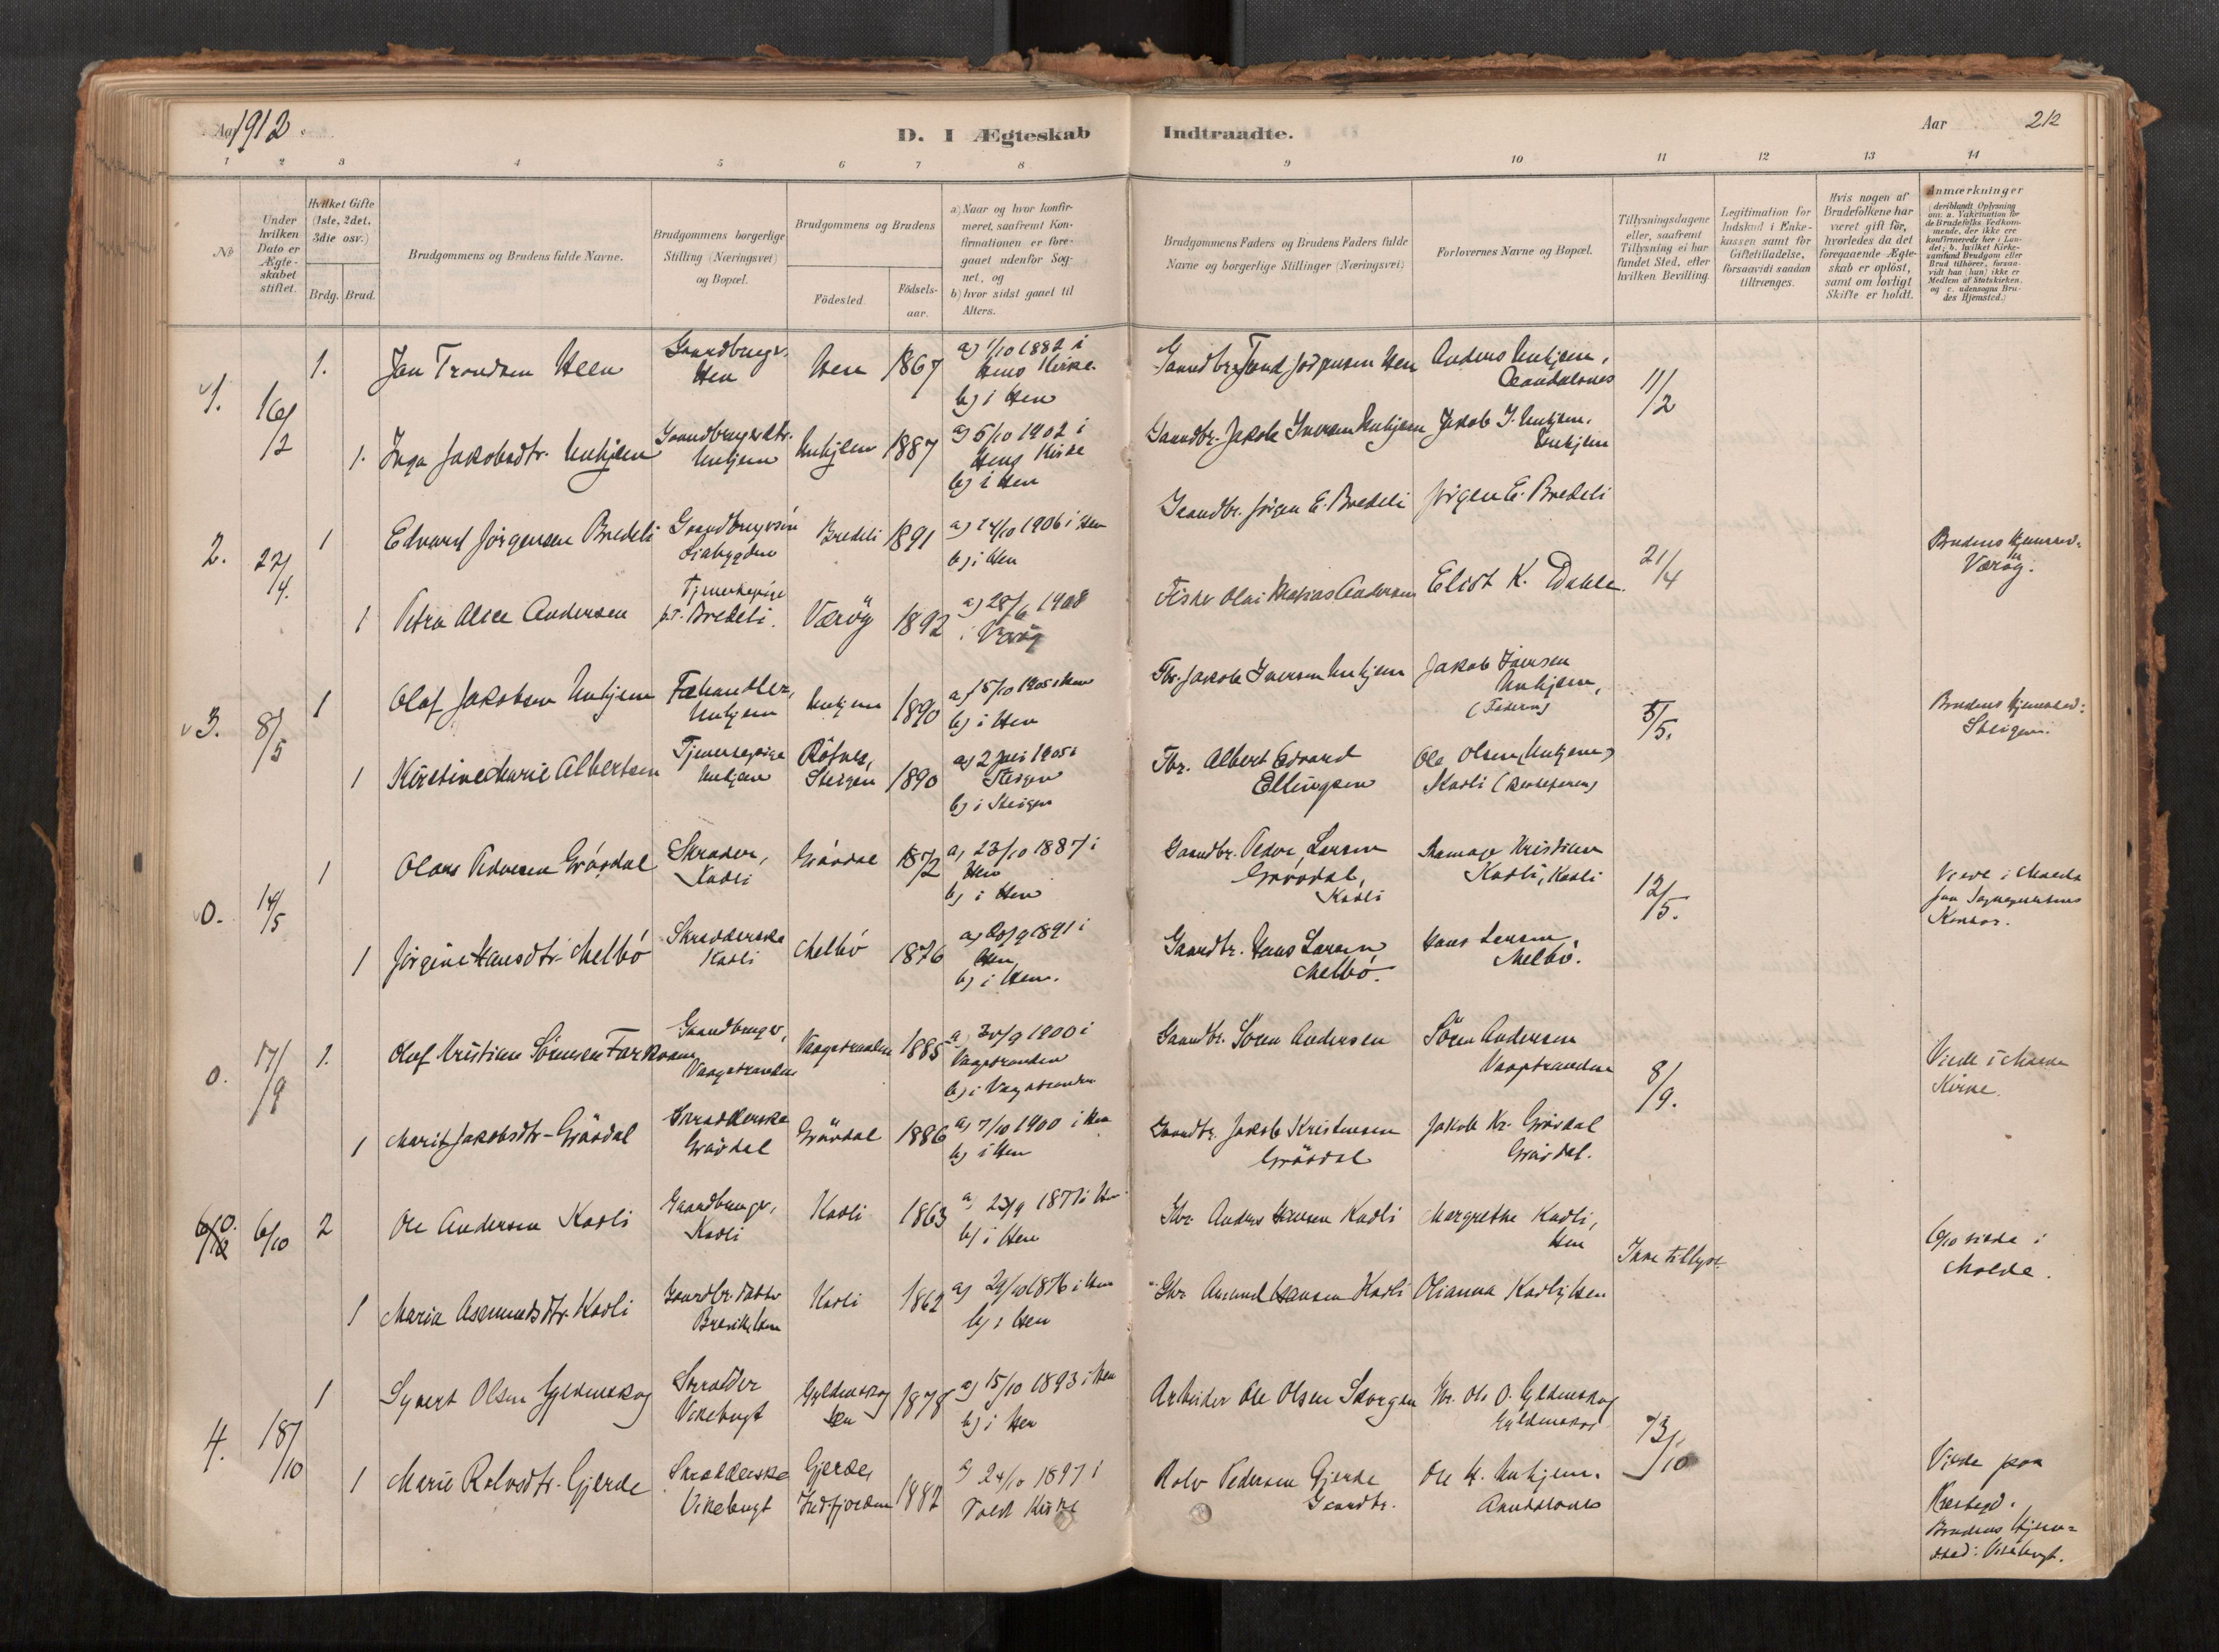 Aar 1912.
D. I Ægteskab Indtraadte.
Aar 212
1 2 3 4 5 6 7 8 9 10 11 12 13 14
No
Under hvilken Dato er Ægteskabet stiftet.
Hvilket Gifte (1ste, 2det, 3die osv.)
Brdg. Brud.
Brudgommens og Brudens fulde Navne.
Brudgommens borgerlige Stilling (Næringsvei) og Bopæl.
Brudgommens og Brudens
Födested.
Födsels-aar.
a) Naar og hvor konfirmeret, saafremt Konfirmationen er foregaaet udenfor Sognet, og
b) hvor sidst gaaet til Alters.
Brudgommens Faders og Brudens Faders fulde Navne og borgerlige Stillinger (Næringsvei)
Forlovernes Navne og Bopæl.
Tillysningsdagene eller, saafremt Tillysning ei har fundet Sted, efter hvilken Bevilling.
Legitimation for Indskud i Enkekassen samt for Giftetilladelse, forsaavidt saadan tiltrænges.
Hvis nogen af Brudefolkene har været gift før, hvorledes da det foregaaende Ægteskab er oplöst, samt om lovligt Skifte er holdt.
Anmærkninger (deriblandt Oplysning om: a. Vakcination for de Brudefolks Vedkommende, der ikke ere konfirmerede her i Landet; b. hvilket Kirkesamfund Brudgom eller Brud tilhörer, forsaavidt han (hun) ikke er Medlem af Statskirken, og c. udensogns Brudes Hjemsted.)
1. 16/2 1. Jan Trondsen Heen Gaardbruger, Hen Hen 1867 a) 1/10 1882 i Hens Kirke. b) i Hen Gaardbr. Trond Jörgensen Hen Anders Unhjem, Aandalsnes 11/2
1. Inga Jakobsdtr. Unhjem Gaardbrugerdtr. Unhjem Unhjem 1887 a) 5/10 1902 i Hens Kirke b) i Hen Gaardbr. Jakob Iversen Unhjem Jakob I. Unhjem. Unhjem
2. 27/4. 1 Edvard Jörgensen Bredeli Gaardbrugersön Bredeli 1891 a) 14/10 1906 i Hen b) i Hen Gaardbr. Jörgen E. Bredeli Jörgen E. Bredeli 21/4 Brudens Hjemsted: Værøy.
1 Petra Alice Andersen Tjenestepige p.t. Bredeli. Værøy 1892 a) 28/6 1908 i Værøy Fisker Olai Andersen Elist K. Dahle.
3. 8/5 1 Olaf Jakobsen Unhjem Fæhandler, Unhjem Unhjem 1890 a) 15/10 1905 i Hen b) i Hen Gbr. Jakob Iversen Unhjem Jakob Iversen Unhjem, (Faderen) 5/5. Brudens Hjemsted: Steigen.
1 Kirstine Marie Albertsen Tjenestepige Unhjem Röfnes, Steigen 1890 a) 2 Juli 1905 i Steigen b) i Steigen Gbr. Albert Edvard Ellingsen Ole Olsen (Unhjem) Kavli
0. 14/5 1 Olaus Pedersen Gråvdal Skræder, Kavli Gråvdal 1872 a) 23/10 1887 i Hen b) i Hen Gaardbr. Peder Larsen Gravdal, Kavli Kristian Kavli, Kavli 12/5. Viede i Molde
1 Jörgine Hansdtr. Melbö Skrædderske Kavli Melbö 1876 a) 20/9 1891 i Hen, b) i Hen. Gaardbr. Hans Larsen Melbö. Hans Larsen Melbö.
0. 17/9 1. Olaf Kristian Sörensen Farkvam Gaardbruger, Vaagstranden Vaagstranden 1885 a) 30/9 1900 i Vaagstranden b) i Vaagstranden Gaardbr. Sören Andersen Sören Andersen Vaagstranden 8/9. Viede i Molde Kirke.
1 Marit Jakobsdtr. Gråvdal Skrædderske Gråvdal Gråvdal 1886 a) 7/10 1900 i Hen b) i Hen Gaardbr. Jakob Kristensen Gråvdal Jakob Kr. Gråvdal Gråvdal.
0. 6/10 2 Ole Andersen Kavli Gaardbruger, Kavli Kavli 1863 a) 23/9 1877 i Hen b) i Hen Gbr. Anders Hansen Kavli Margrethe Kavli, Hen Ikke tillyst. 6/10 viede i Molde.
1 Maria Asmundsdtr. Kavli Gaardbr. datter Kavli 1862 a) 29/10 1876 i Hen b) i Hen Gbr. Asmund Hansen Kavli Olianna Kavli, Hen
4. 18/10 1 Syvert Olsen Gyldenskog Skrædder Vikebugt Gyldenskog Hen 1878 a) 15/10 1893 i Hen b) i Hen Arbeider Ole Olsen Skorgen Gbr. Ole O. Gyldenskog Gyldenskog 13/10 Viede paa Brudens Hjemsted: Vikebugt.
1 Marie Rolvsdtr. Gjerde Skrædderske Vikebugt Gjerde, Indfjorden 1882 a) 24/10 1897 i Vold Kirke Rolv Pedersen Gjerde Gaardbr. Ole H. Unhjem. Aandalsnes